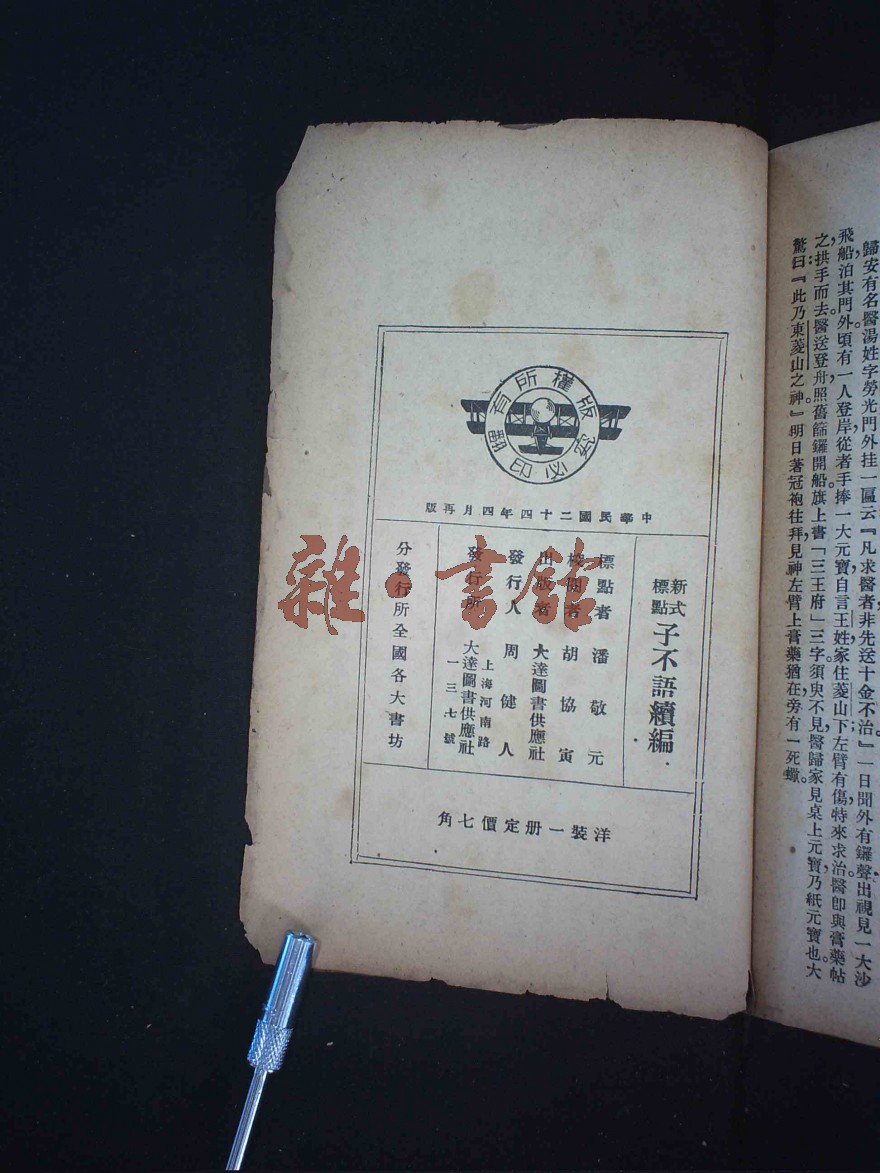 歸安有名醫湯姓字勞光門外挂一匾云『凡求醫者非先送十金不治。』一日聞外有鑼聲出視見一大沙
飛船泊其門外頃有一人登岸從者手捧一大元寶自言王姓家住菱山下左臂有傷特來求治。醫卽與膏藥帖
之拱手而去。醫送登舟照舊篩鑼開船旗上書「三王府」三字須臾不見醫歸家見桌上元寶乃紙元寶也大
驚曰:『此乃東菱山之神。』明日著冠袍往拜見神左臂上膏藥猶在旁有一死蠍。
版權所有
翻印必究
中華民國二十四年四月再版
新式標點 子不語續編
標點者 潘敬元
校閱者 胡協寅
出版者 大達圖書供應社
發行人 周健人
發行所 上海河南路一三七號 大達圖書供應社
分發行所全國各大書坊
洋裝一册定價七角
雜·書館